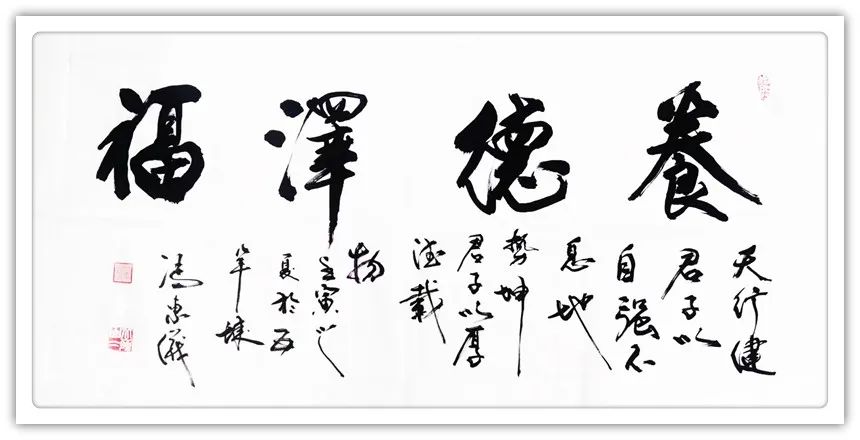 養德澤福
天行健
君子以
自强不
息地
勢坤
君子以厚
德載
物
壬寅之
夏於五
羊城
馮惠儀